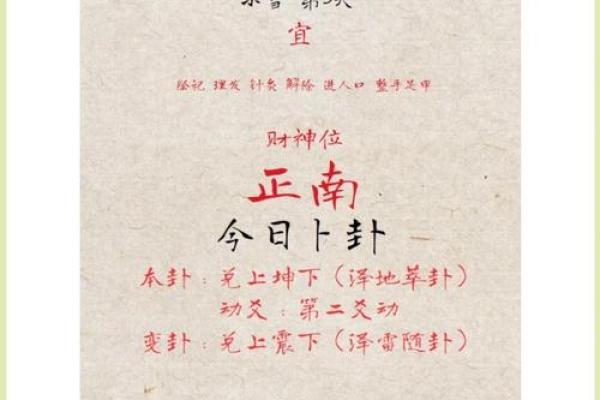 宜
祭祀 理发 针灸 解除 进人口 整手足甲
财神位
正南
今日卜卦
本卦：兑上坤下（泽地萃卦）
动爻：第二爻动
变卦：兑上震下（泽雷随卦）